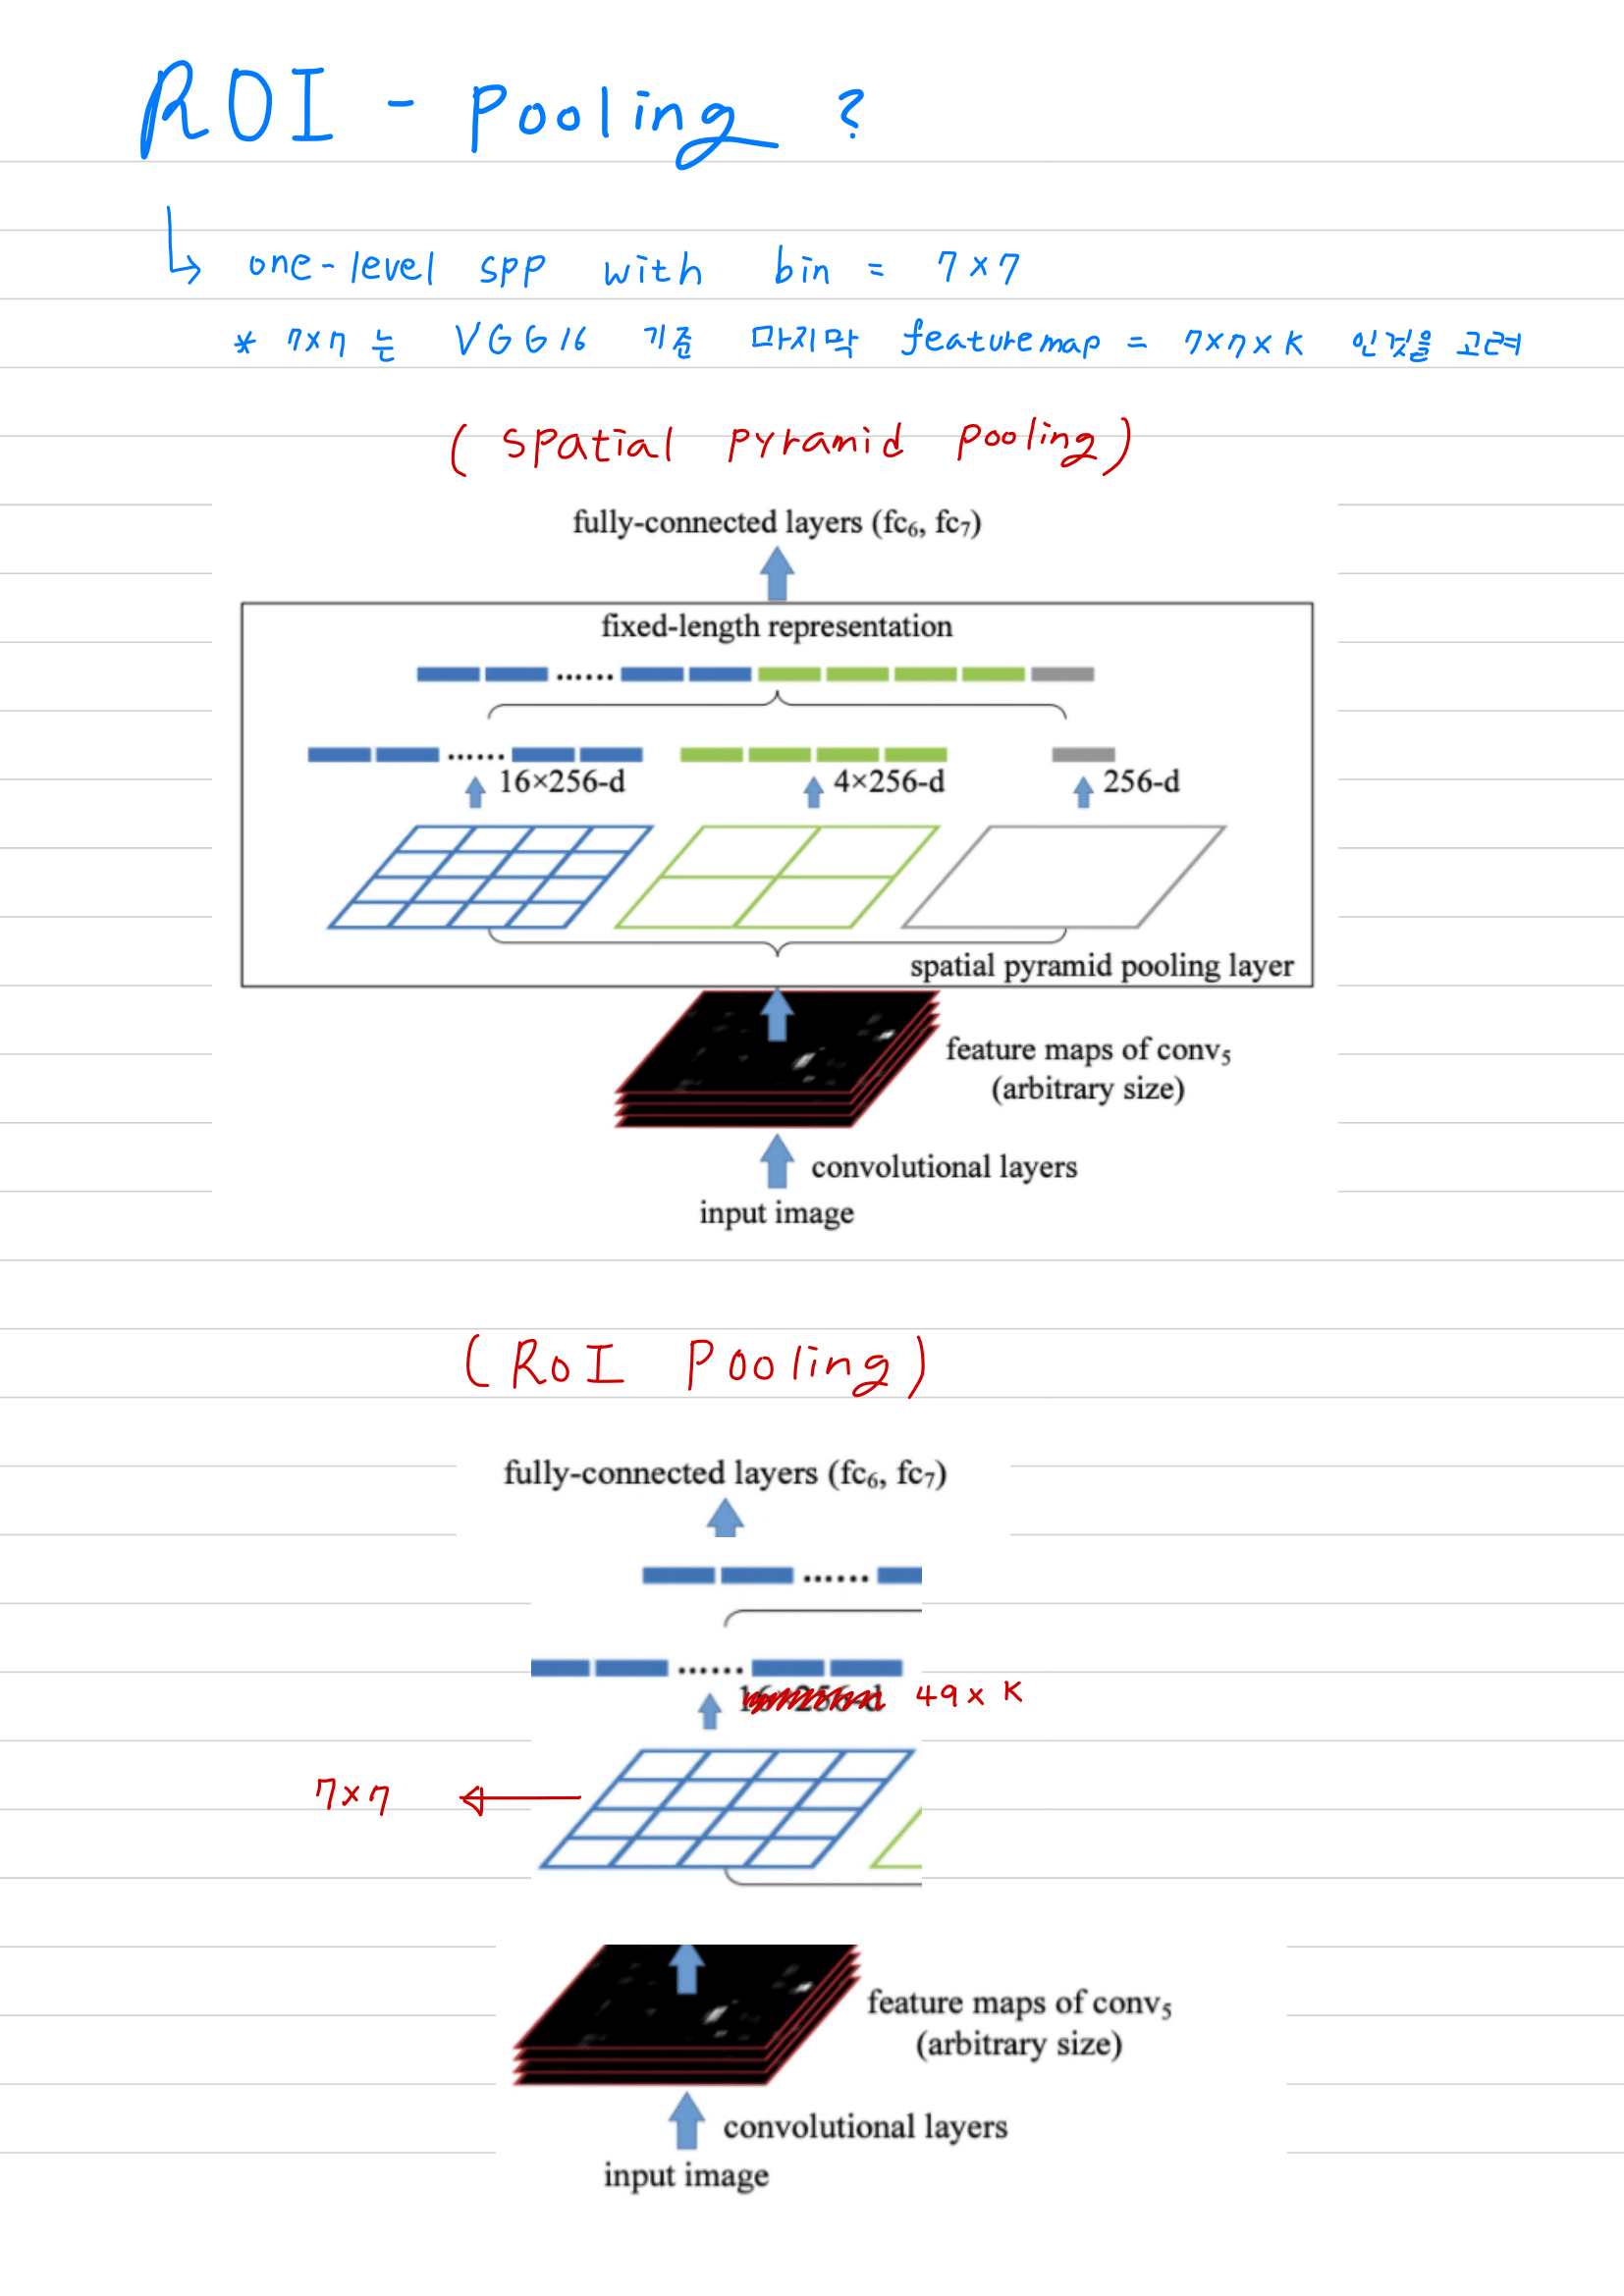 ROI - Pooling ?
one-level spp with bin = 7×7
* 7×7 는 VGG16 기준 마지막 featuremap = 7×7×K 인것을 고려
( Spatial pyramid pooling )
fully-connected layers (fc₆, fc₇)
fixed-length representation
......
......
16×256-d 4×256-d 256-d
spatial pyramid pooling layer
feature maps of conv₅
(arbitrary size)
convolutional layers
input image
( RoI Pooling )
fully-connected layers (fc₆, fc₇)
......
......
16×256-d 49 × K
7×7
feature maps of conv₅
(arbitrary size)
convolutional layers
input image